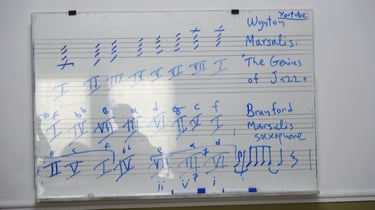 Youtube:
Wynton
Marsalis:
"The Genius
of Jazz"
I II III IV V VI VII I
Branford
Marsalis
saxophone
f bb e a d g c f
I IV VII III VI II V I
g c f bb e a d
II V I IV VII III VI
ii V7 i